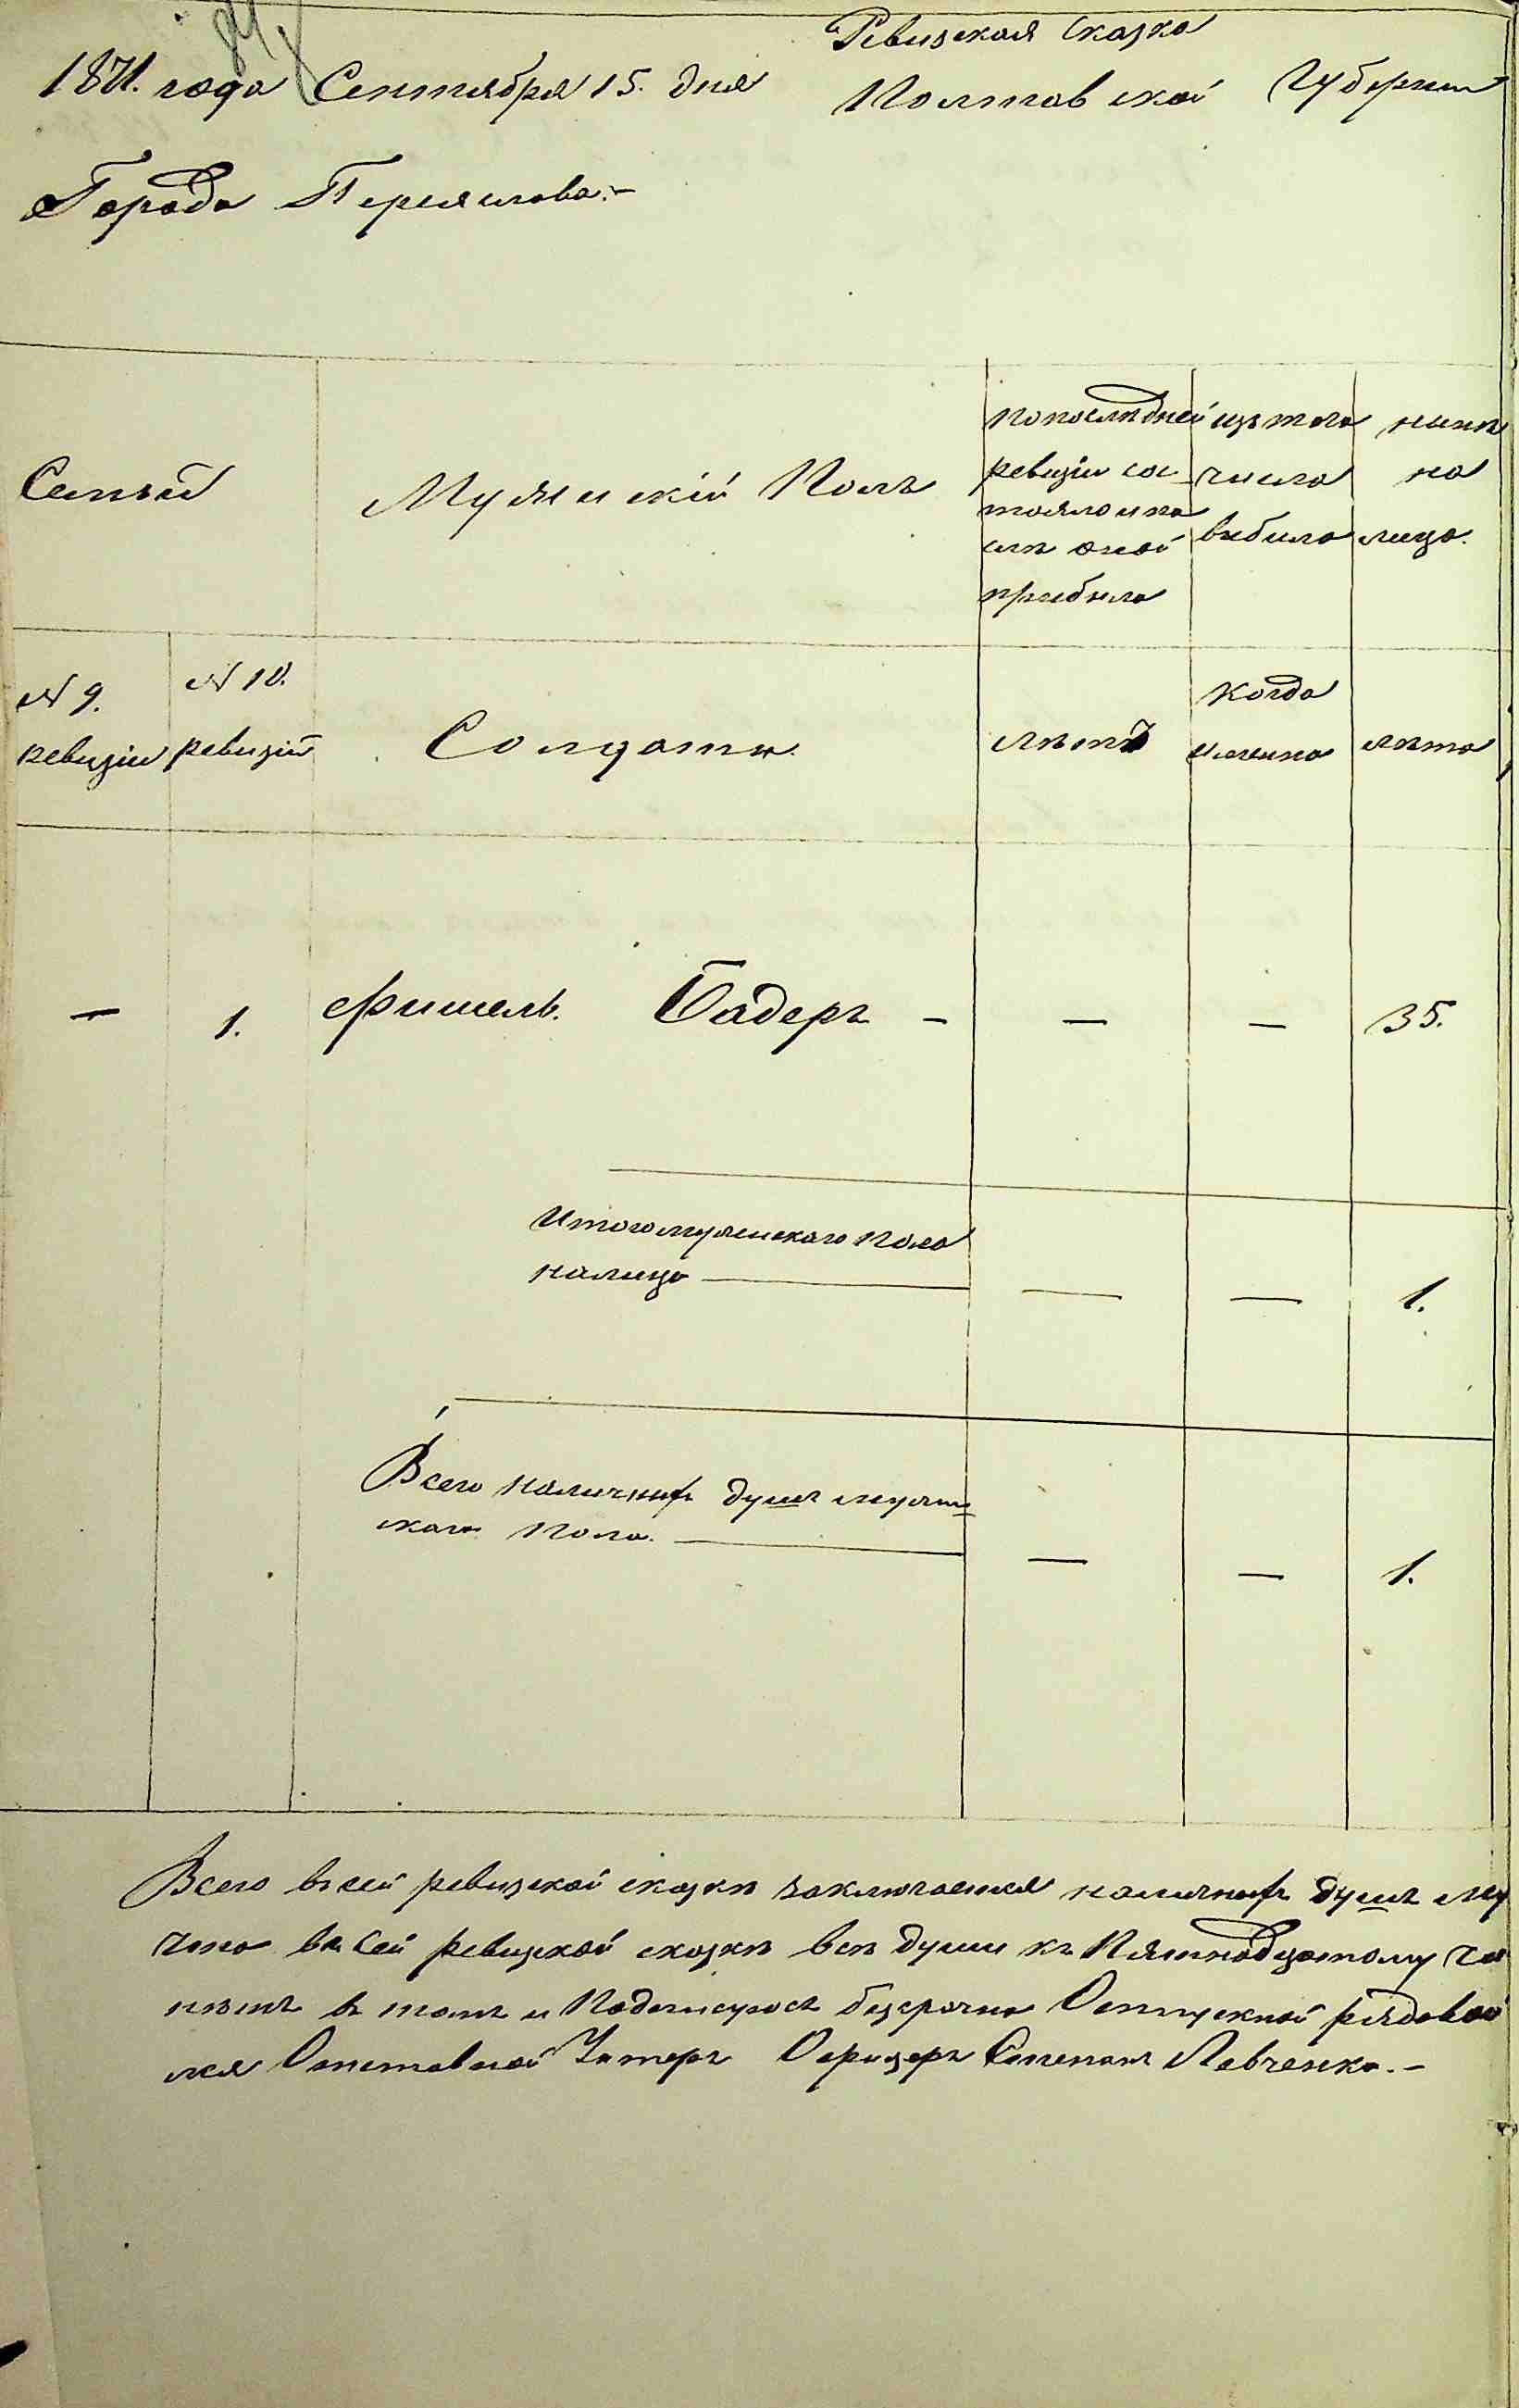 Ревизская Сказка
1871. года Сентября 15. дня Полтавской Губернии
Города Переяслова.-
Семьи
Мужескій Полъ
по последней
ревизіи сос
тояло и по
слѣ оной
прибыло
изъ того
числа
выбыло
нынѣ
на
лицо.
№ 9.
ревизіи
№ 10.
ревизіи
Солдаты
лѣтъ
когда
именно
лѣта
— 1. Фишель. Бадеръ - — — 35.
Итого мужескаго пола
налицо — — 1.
Всего наличныхъ душъ мужес
каго Пола. — — 1.
Всего въ сей ревизской сказкѣ заключается наличныхъ душъ му
чено въ сей ревизской сказкѣ всѣ души къ Пятнадцатому Се
нѣтъ въ томъ и Подписуюсь безсрочно Отпускной рядовой
лся Отставной Унтеръ Офицеръ Степанъ Левченко.-